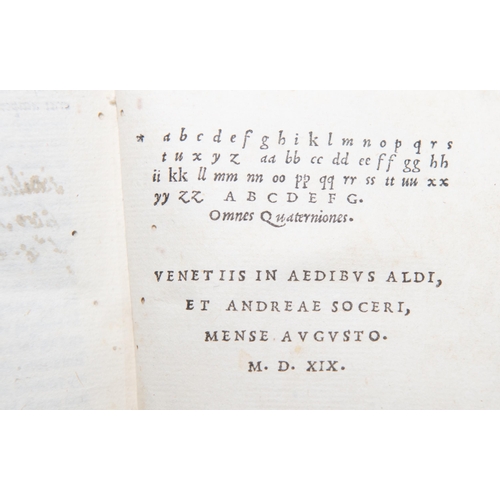 * a b c d e f g h i k l m n o p q r s
t u x y z aa bb cc dd ee ff gg hh
ii kk ll mm nn oo pp qq rr ss tt uu xx
yy zz A B C D E F G.
Omnes Quaterniones.
VENETIIS IN AEDIBVS ALDI,
ET ANDREAE SOCERI,
MENSE AVGVSTO.
M. D. XIX.